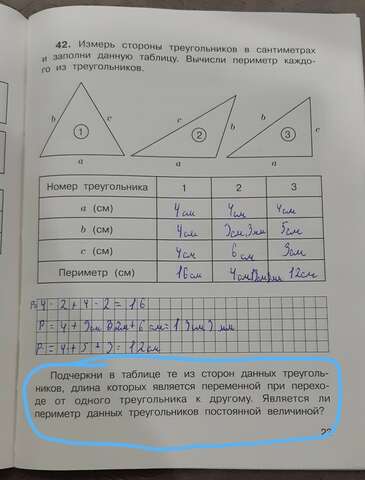 42. Измерь стороны треугольников в сантиметрах
и заполни данную таблицу. Вычисли периметр каждо-
го из треугольников.
b 1 c
a
c 2 b
a
b 3 c
a
Номер треугольника 1 2 3
a (см) 4 см 4 см 4 см
b (см) 4 см 3 см, 3 мм 5 см
c (см) 4 см 6 см 3 см
Периметр (см) 16 см 12 см
P= 4 · 2 + 4 · 2 = 16
P = 4 + 3 см + 6 см = 13 см 3 мм
P = 4 + 5 + 3 = 12 см
Подчеркни в таблице те из сторон данных треуголь-
ников, длина которых является переменной при перехо-
де от одного треугольника к другому. Является ли
периметр данных треугольников постоянной величиной?